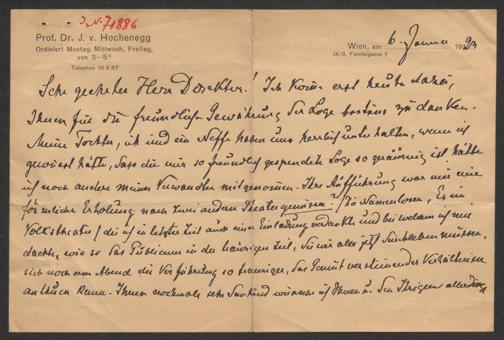 J.N. 71886
Prof. Dr. J. v. Hochenegg
Ordiniert Montag, Mittwoch, Freitag,
von 3–5h
Telephon 16 2 87
Wien, am 6. Januar 192
IX/3, Ferstelgasse 1
Sehr geehrter Herr Direktor! Ich komme erst heute dazu,
Ihnen für die freundliche Gewährung der Loge bestens zu danken.
Meine Tochter, ich und ein Neffe haben uns herrlich unterhalten, wenn ich
gewusst hätte, dass die mir so freundlich gespendete Loge so geräumig ist hätte
ich noch andere meiner Verwandten mitgenommen. Ihre Aufführung war mir eine
förmliche Erholung nach zwei andern Theatergenüssen: Die Namenlosen, Es im
Volkstheater / die ich in letzter Zeit einer Einladung verdankte und bei welchen ich mir
dachte, wie so das Publicum in der traurigen Zeit, die wir alle jetzt durchleben müssen,
sich noch am Abend die Vorführung so trauriger, das Gemüt verstimmender Verhältnisse
anthun kann. Ihnen nochmals sehr dankend wünsche ich Ihnen u. den Ihrigen